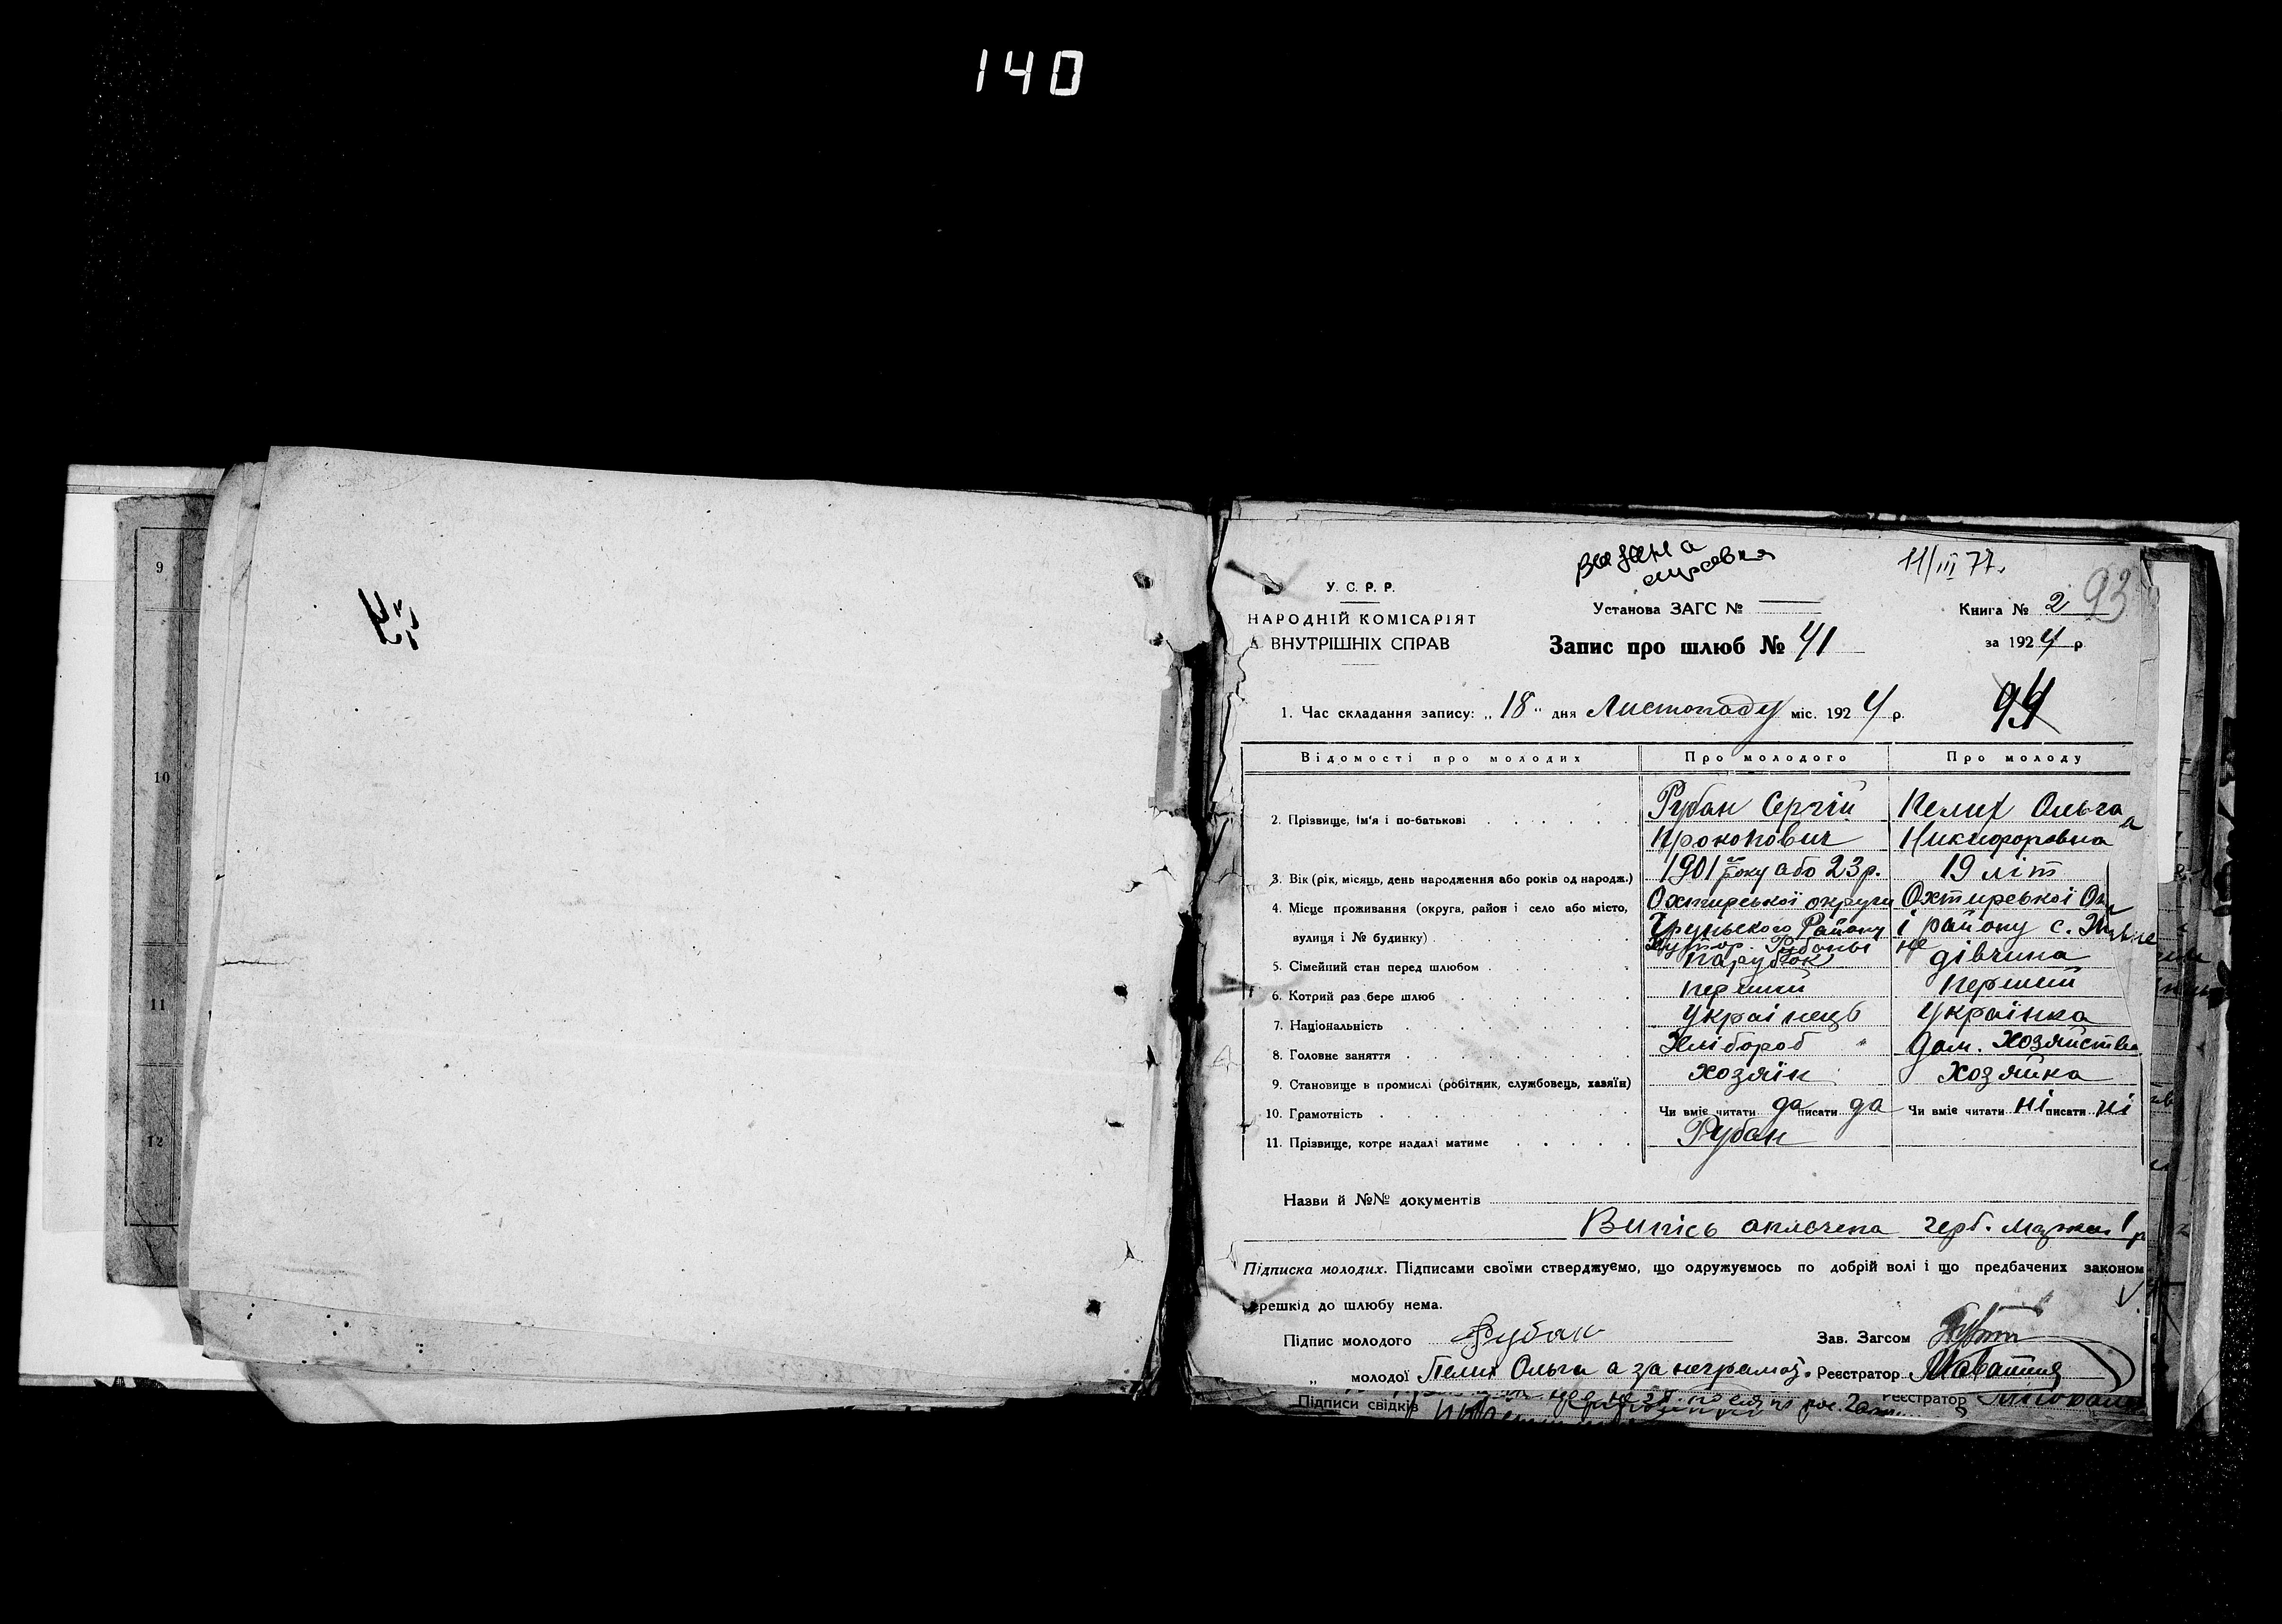 140
9
10
11
12
видана
справка
11/III 77.
У. С. Р. Р.
НАРОДНІЙ КОМІСАРІЯТ
ВНУТРІШНІХ СПРАВ
Установа ЗАГС №
Запис про шлюб № 41
Книга № 2
93
за 1924 р
94
1. Час складання запису: „18" дня Листопаду міс. 1924 р.
Відомості про молодих Про молодого Про молоду
2. Прізвище, ім'я і по-батькові Рубан Сергій Пелих Ольга
Прокопович Никифоровна
3. Вік (рік, місяць, день народження або років од народж.) 1901 року або 23 р. 19 літ
4. Місце проживання (округа, район і село або місто, Охтирської округи Охтирської
вулиця і № будинку) Грунського Району і району с.
Хутор. Рубаны
5. Сімейний стан перед шлюбом парубок дівчина
6. Котрий раз бере шлюб перший перший
7. Національність Українець Українка
8. Головне заняття Хлібороб дом. хозяйство
9. Становище в промислі (робітник, службовець, хазяїн) хозяін хозяйка
10. Грамотність Чи вміє читати да писати да Чи вміє читати ні писати ні
11. Прізвище, котре надалі матиме Рубан
Назви й №№ документів
Випісь оплочена герб. марка 1 р
Підписка молодих. Підписами своїми стверджуємо, що одружуємось по добрій волі і що предбачених законом
ерешкід до шлюбу нема.
Підпис молодого Рубан Зав. Загсом
„ молодої Пелих Ольга а за неграмот. Реєстратор
Підписи свідків Реєстратор